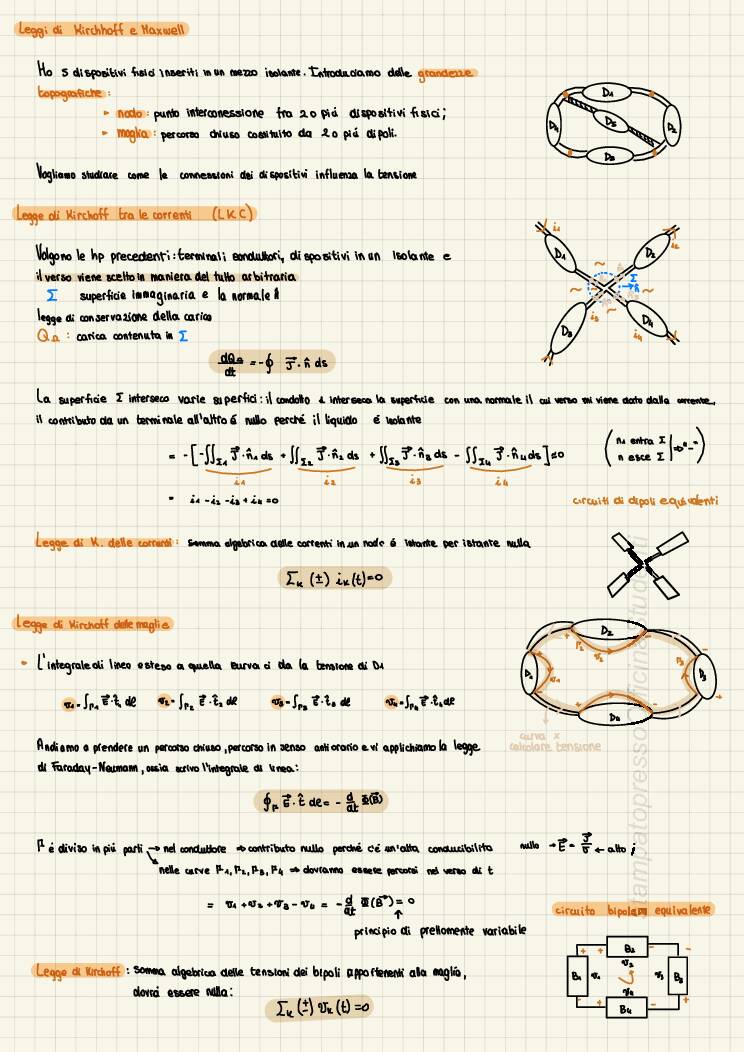 Leggi di Kirchhoff e Maxwell
Ho 5 dispositivi fisici inseriti in un mezzo isolante. Introduciamo delle grandezze
topografiche:
▸ nodo: punto interconessione fra 2 o più dispositivi fisici;
▸ maglia: percorso chiuso costituito da 2 o più dipoli.
Vogliamo studiare come le connessioni dei dispositivi influenza la tensione
D1
D2
D3
D4
D5
Legge di Kirchoff tra le correnti (LKC)
Valgono le hp precedenti: terminali conduttori, dispositivi in un isolante e
il verso viene scelto in maniera del tutto arbitraria
Σ superficie immaginaria e la normale n̂
legge di conservazione della carica
QΩ: carica contenuta in Σ
dQΩ/dt = -∮ J⃗·n̂ ds
i1
i2
D1
D2
Σ
n̂
D3
D4
i3
i4
La superficie Σ interseca varie superfici: il condotto 1 interseca la superficie con una normale il cui verso mi viene dato dalla corrente,
il contributo da un terminale all'altro é nullo perché il liquido é isolante
= -[-∬Σ1 J⃗·n̂1 ds + ∬Σ2 J⃗·n̂2 ds + ∬Σ3 J⃗·n̂3 ds - ∬Σ4 J⃗·n̂4 ds] = 0
i1 i2 i3 i4
(n1 entra Σ
n esce Σ | => "-")
i1 - i2 - i3 + i4 = 0
circuiti di dipoli equivalenti
Legge di K. delle correnti: somma algebrica delle correnti in un nodo é istante per istante nulla
Σk (±) ik(t) = 0
Legge di Kirchoff delle maglie
• L'integrale di linea esteso a quella curva ci da la tensione di D1
v1 = ∫Γ1 E⃗·t̂1 dl v2 = ∫Γ2 E⃗·t̂2 dl v3 = ∫Γ3 E⃗·t̂3 dl v4 = ∫Γ4 E⃗·t̂ dl
D2
D1
D3
D4
curva x
calcolare tensione
Andiamo a prendere un percorso chiuso, percorso in senso antiorario e vi applichiamo la legge
di Faraday-Neumann, ossia scrivo l'integrale di linea:
∮Γ E⃗·t̂ dl = - d/dt Φ(B⃗)
Γ é diviso in più parti → nel conduttore ⇒ contributo nullo perché c'é un'alta conducibilita
nullo → E⃗ = J⃗/σ ← alto;
nelle curve Γ1, Γ2, Γ3, Γ4 ⇒ dovranno essere percorsi nel verso di t
= v1 + v2 + v3 - v4 = - d/dt Φ(B⃗) = 0
principio di prettomente variabile
circuito bipolare equivalente
B2
B1
v1
v2
v3
B3
v4
B4
Legge di Kirchoff: somma algebrica delle tensioni dei bipoli appartenenti alla maglia,
dovrá essere nulla:
Σk (±) vk(t) = 0